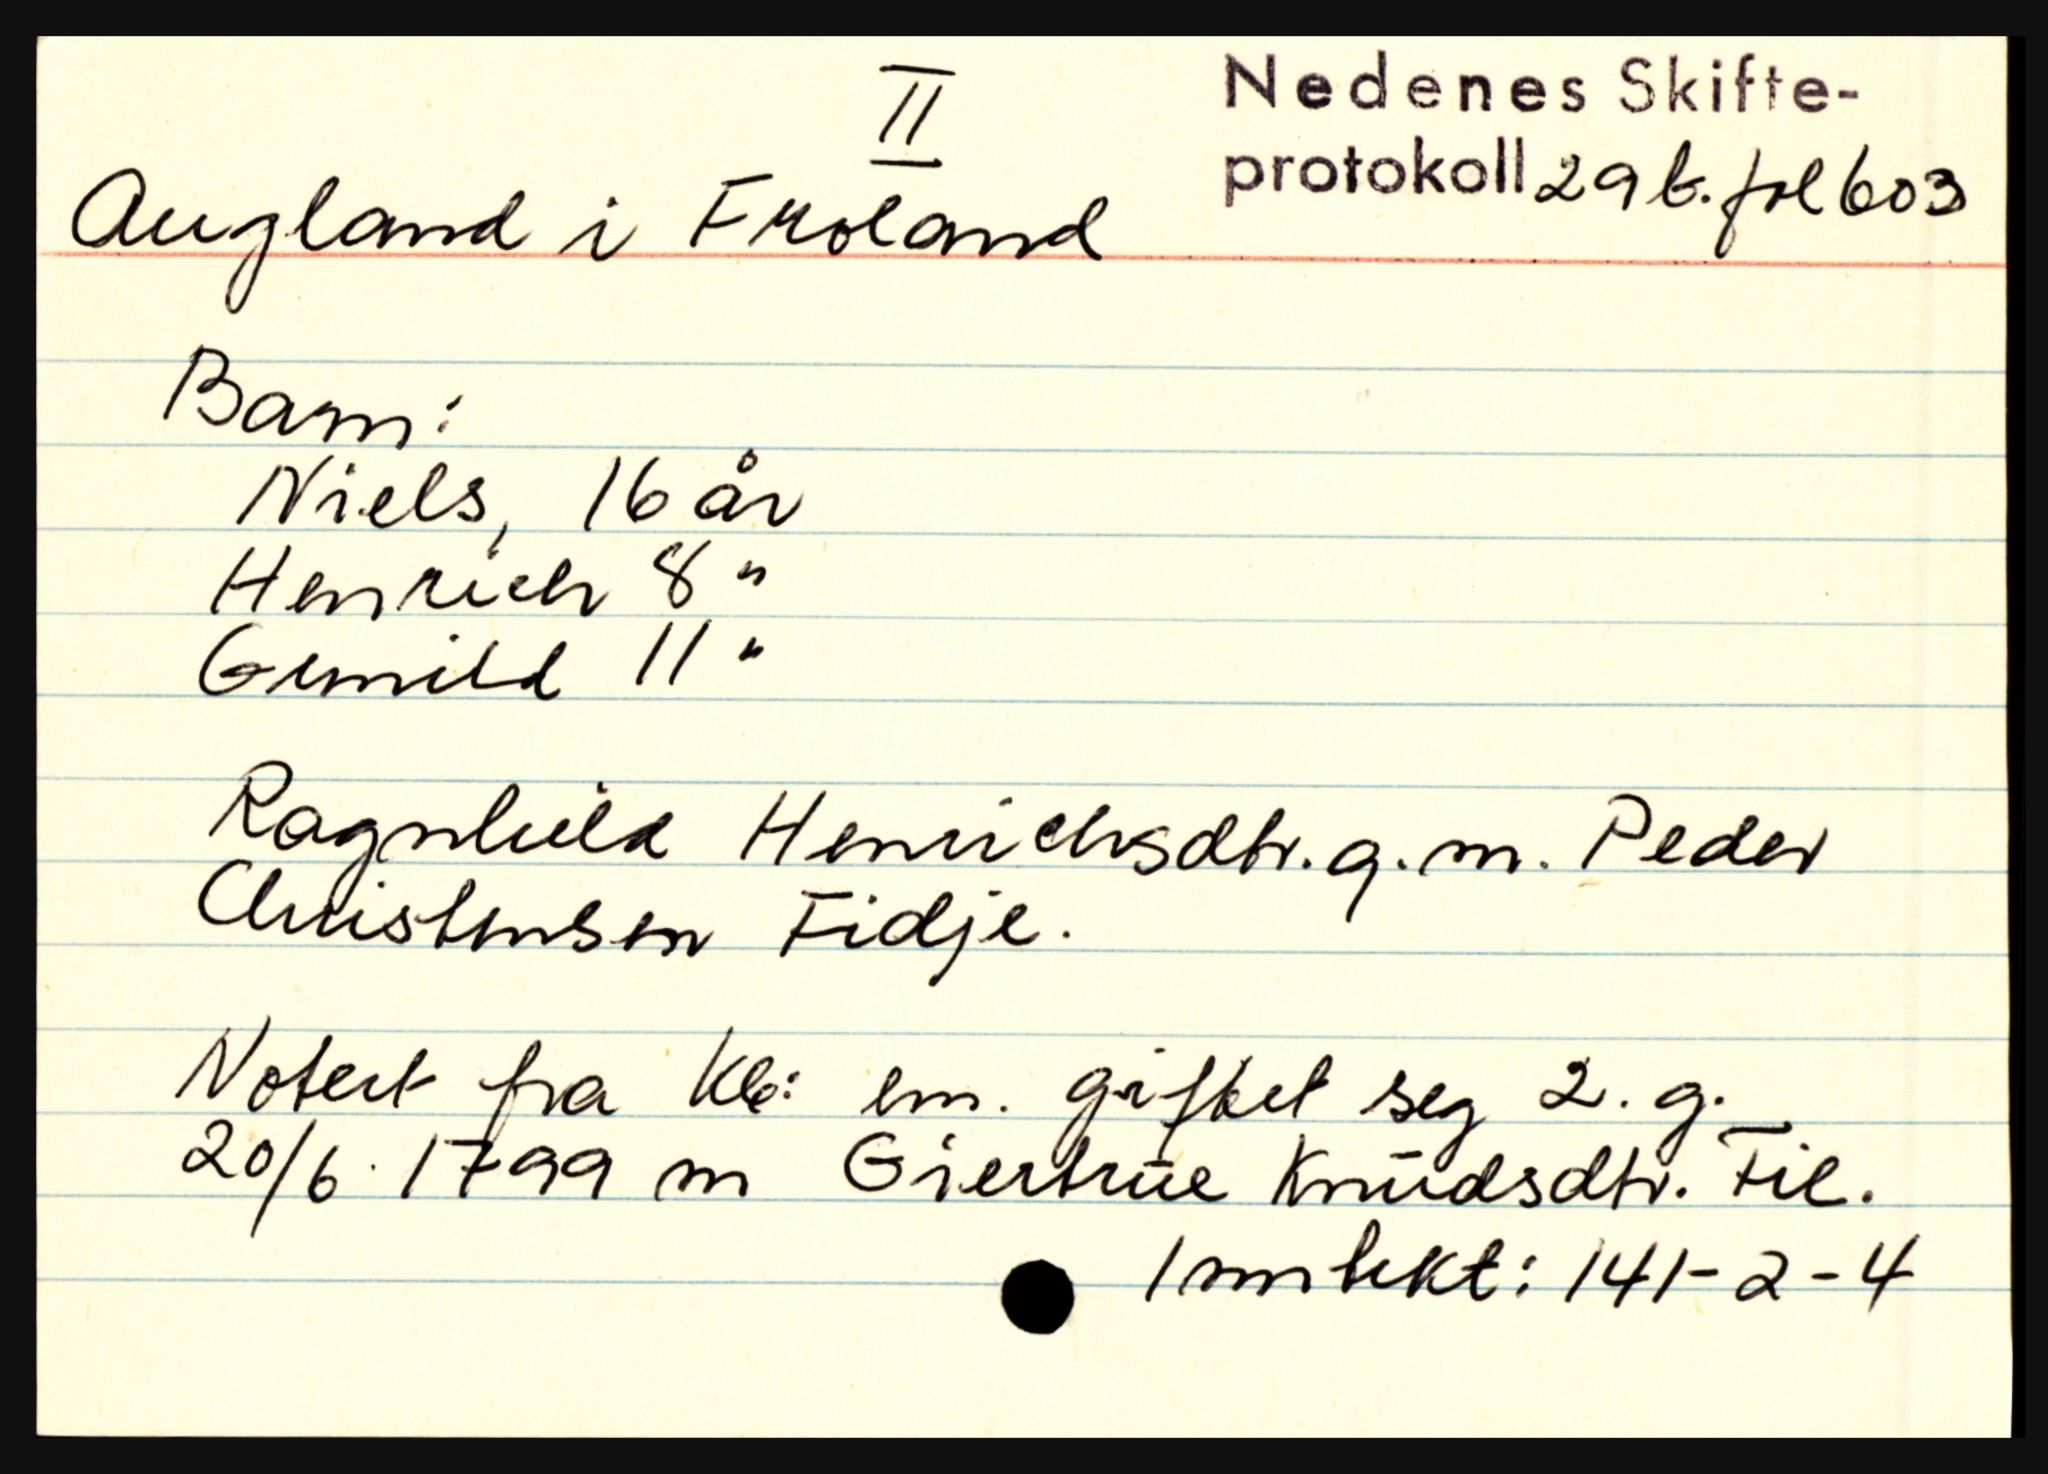 II
Nedenes Skifte-
protokoll 29 b. fol 603
Augland i Froland
Barn:
Niels, 16 år
Henrich 8 "
Gunild 11 "
Ragnhild Henrichsdtr. g. m. Peder
Christensen Fidje.
Notert fra Kb: em. giftet seg 2. g.
20/6. 1799 m Giertrue Knudsdtr. Fil.
Inntekt: 141-2-4